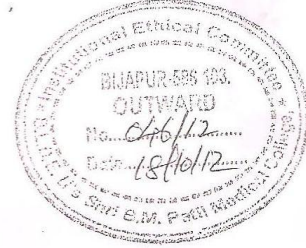 Institutional Ethical Committee
BIJAPUR-586 103.
OUTWARD
No. 046/12
Date 18/10/12
Shri B.M. Patil Medical